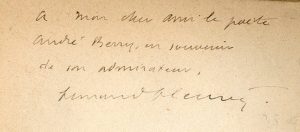 A mon cher ami le poète
André Berry, en souvenir
de son admirateur,
Fernand Fleuret.